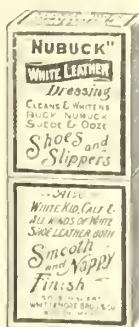 NUBUCK"
WHITE LEATHER
Dressing
CLEANS & WHITENS
BUCK NUBUCK
SUEDE & OOZE
Shoes and
Slippers
ALSO
WHITE KID, CALF &
ALL KINDS OF WHITE
SHOE LEATHER BOTH
Smooth
and Nappy
Finish
WHITTEMORE BROS & CO